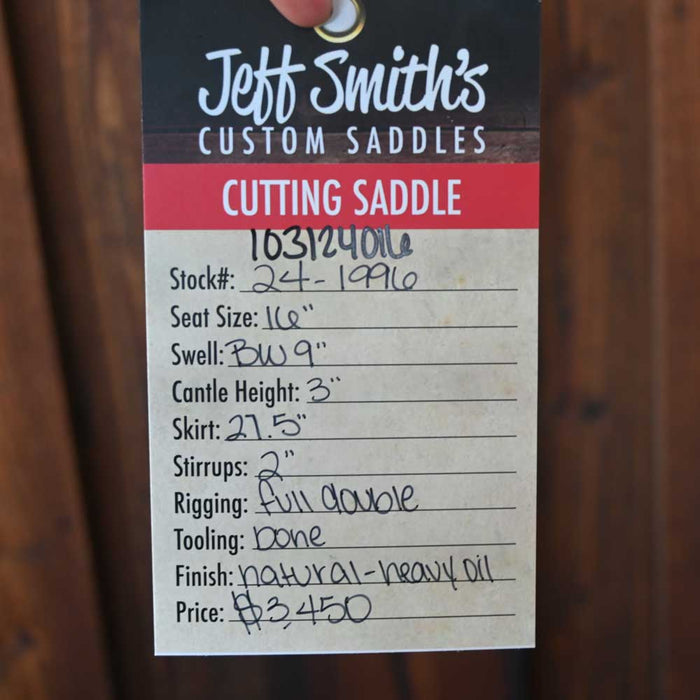 Jeff Smith's
CUSTOM SADDLES
CUTTING SADDLE
103124016
Stock#: 24-1996
Seat Size: 16"
Swell: BW 9"
Cantle Height: 3"
Skirt: 27.5"
Stirrups: 2"
Rigging: full double
Tooling: Done
Finish: natural-heavy oil
Price: $3,450